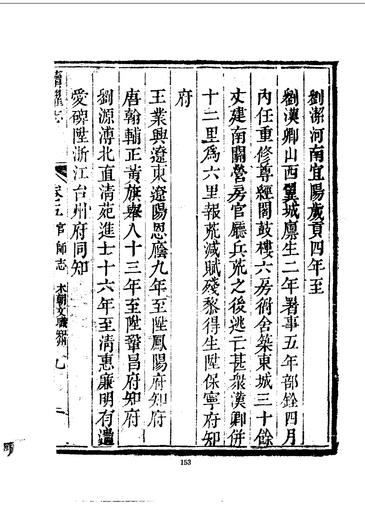 劉潔河南宜陽歲貢四年至
劉漢卿山西翼城廩生二年署事五年部銓四月
內任重修尊經閣鼓樓六房術舍築東城三十餘
丈建南關營房官廳兵荒之後逃亡甚衆漢卿併
十二里爲六里報荒減賦殘黎得生陞保寧府知
府
王業興遼東遼陽恩廕九年至陞鳳陽府知府
唐翰輔正黃旗舉人十三年至陞鞏昌府知府
劉源溥北直清苑進士十六年至清惠廉明有遺
愛碑陞浙江台州府同知
卷之五 官師志 本朝文職知州 九
153